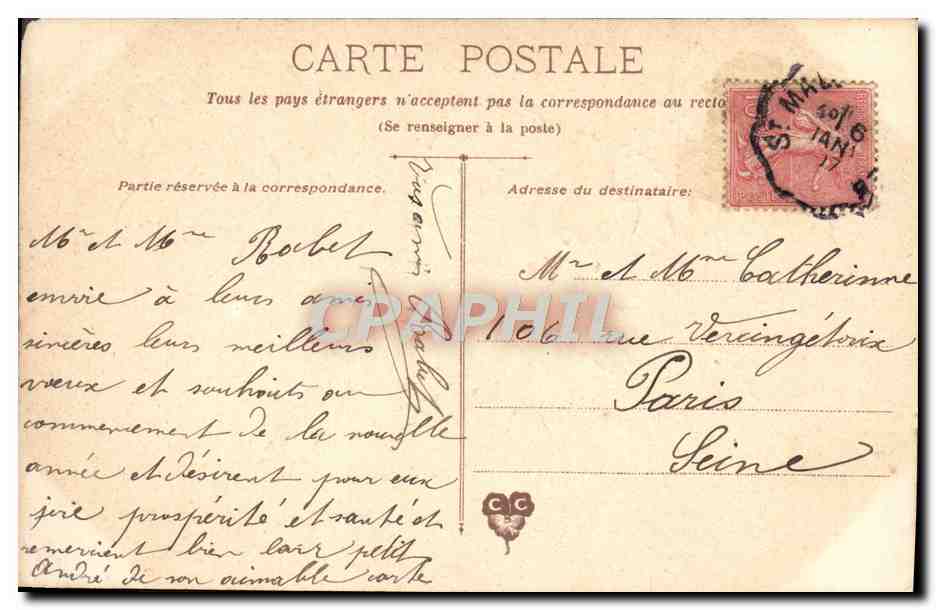 CARTE POSTALE
Tous les pays étrangers n'acceptent pas la correspondance au recto
(Se renseigner à la poste)
Partie réservée à la correspondance.
Adresse du destinataire:
Mr et Mme Rabet
envoie à leurs amis
sincères leurs meilleurs
voeux et souhaits au
commencement de la nouvelle
année et désirent pour eux
joie prospérité et santé et
remercient bien leur petit
André de son aimable carte
Rabet
Mr et Mme Catherinne
106 rue Vercingétorix
Paris
Seine
ST MAL
6
JANV
CPAPHIL
C C